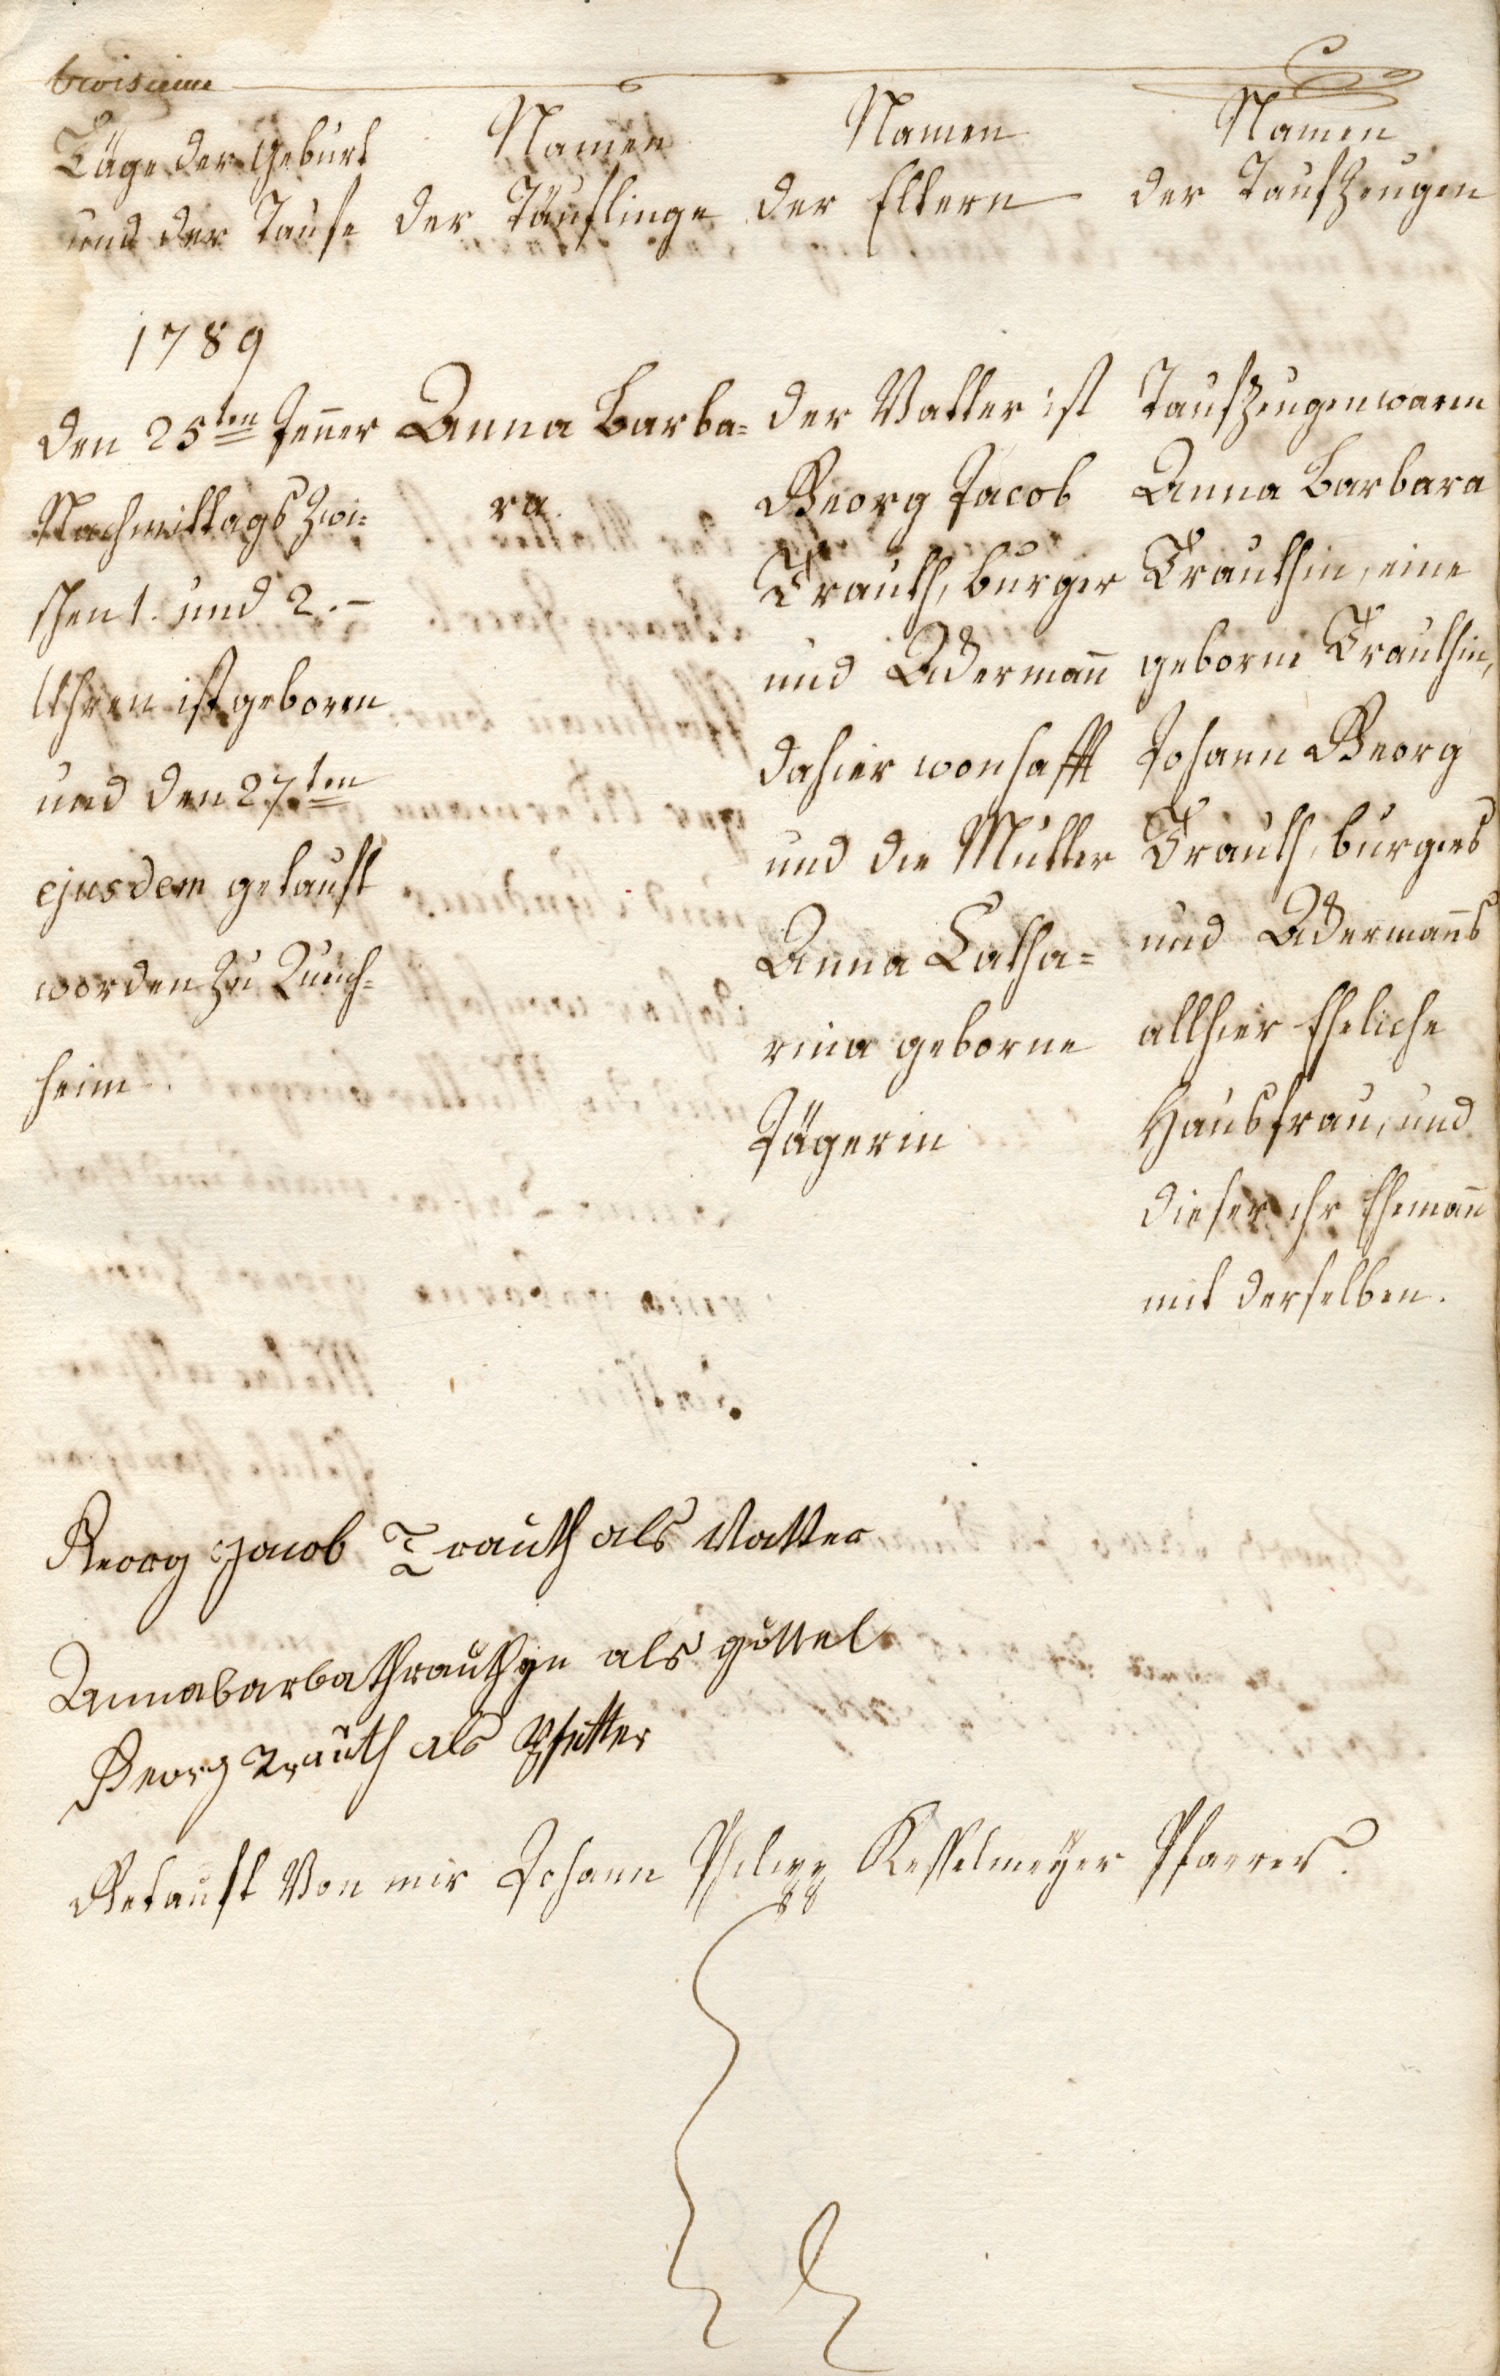 troisieme
Täge der Geburt
und der Taufe
Namen
der Täuflinge
Namen
der Eltern
Namen
der Taufzeugen
1789
den 25ten Jenner
Nachmittags zwi=
schen 1. und 2.
Uhren ist geboren
und den 27ten
ejusdem getauft
worden zu Queich=
heim.
Anna Barba=
ra.
der Vatter ist
Georg Jacob
Trauth, burger
und Ackermann
dahier wonhafft
und die Mutter
Anna Catha=
rina geborne
Jägerin
Taufzeugen waren
Anna Barbara
Trauthin, eine
geborne Trauthin,
Johann Georg
Trauth, burgers
und Ackermanns
allhier Eheliche
Hausfrau, und
dieser ihr Ehemann
mit derselben.
Georg Jacob Trauth als Vatter
Annabarbathrauthyn als göttel
Georg Trauth als Pfetter
Getauft Von mir Johann Philipp Kesselmeyer Pfarrer.